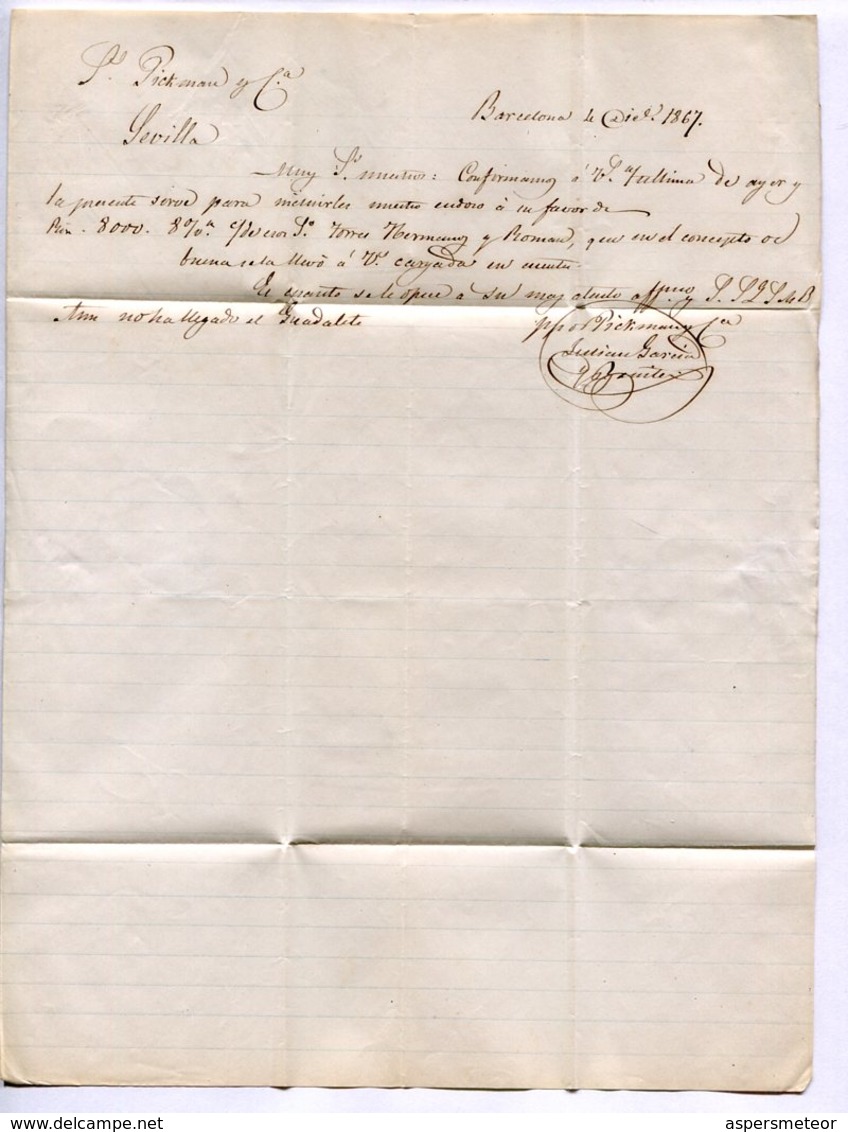 Sres. Pickman y Ca.
Sevilla
Barcelona de Dice. 1867.
Muy Sres. nuestros: Confirmamos á Vs. última de ayer y
la presente sirve para incluirles nuestro endoso á su favor de
Rvn. 8000. 8 d/v. c/ de esos Sres. Torres Hermanos y Roman, que en el concepto de
buena se la llevo á Vs. cargada en cuenta.
Es cuanto se le ofrece a su mas atento affmo. y S. S. Q. S. M. B.
Aun no ha llegado el Guadalete
ppor Pickman y Ca
Julian Garcia
www.delcampe.net
aspersmeteor